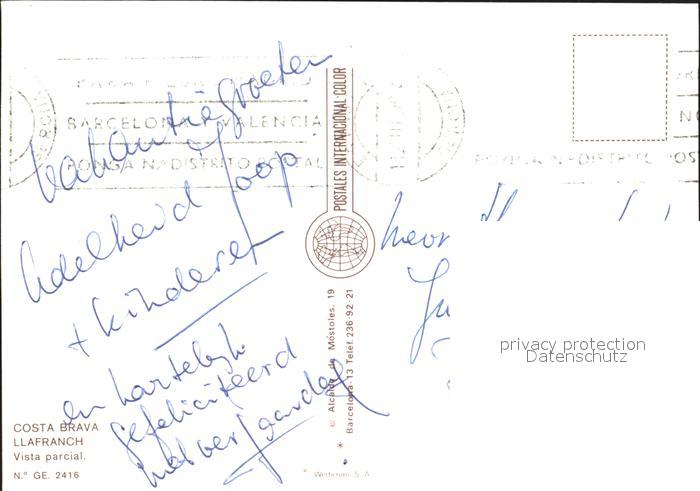 vakantiegroeten
Joop
Adelheid
+ kinderen
en hartelijk
gefeliciteerd
met verjaardag
BARCELONA Y VALENCIA
PONGA N.º DISTRITO POSTAL
PONGA N.º DISTRITO POST
POSTALES INTERNACIONAL COLOR
c/ Alcalde de Móstoles, 19
Barcelona-13 Teléf. 236-92-21
privacy protection
Datenschutz
COSTA BRAVA
LLAFRANCH
Vista parcial.
N.º GE. 2416